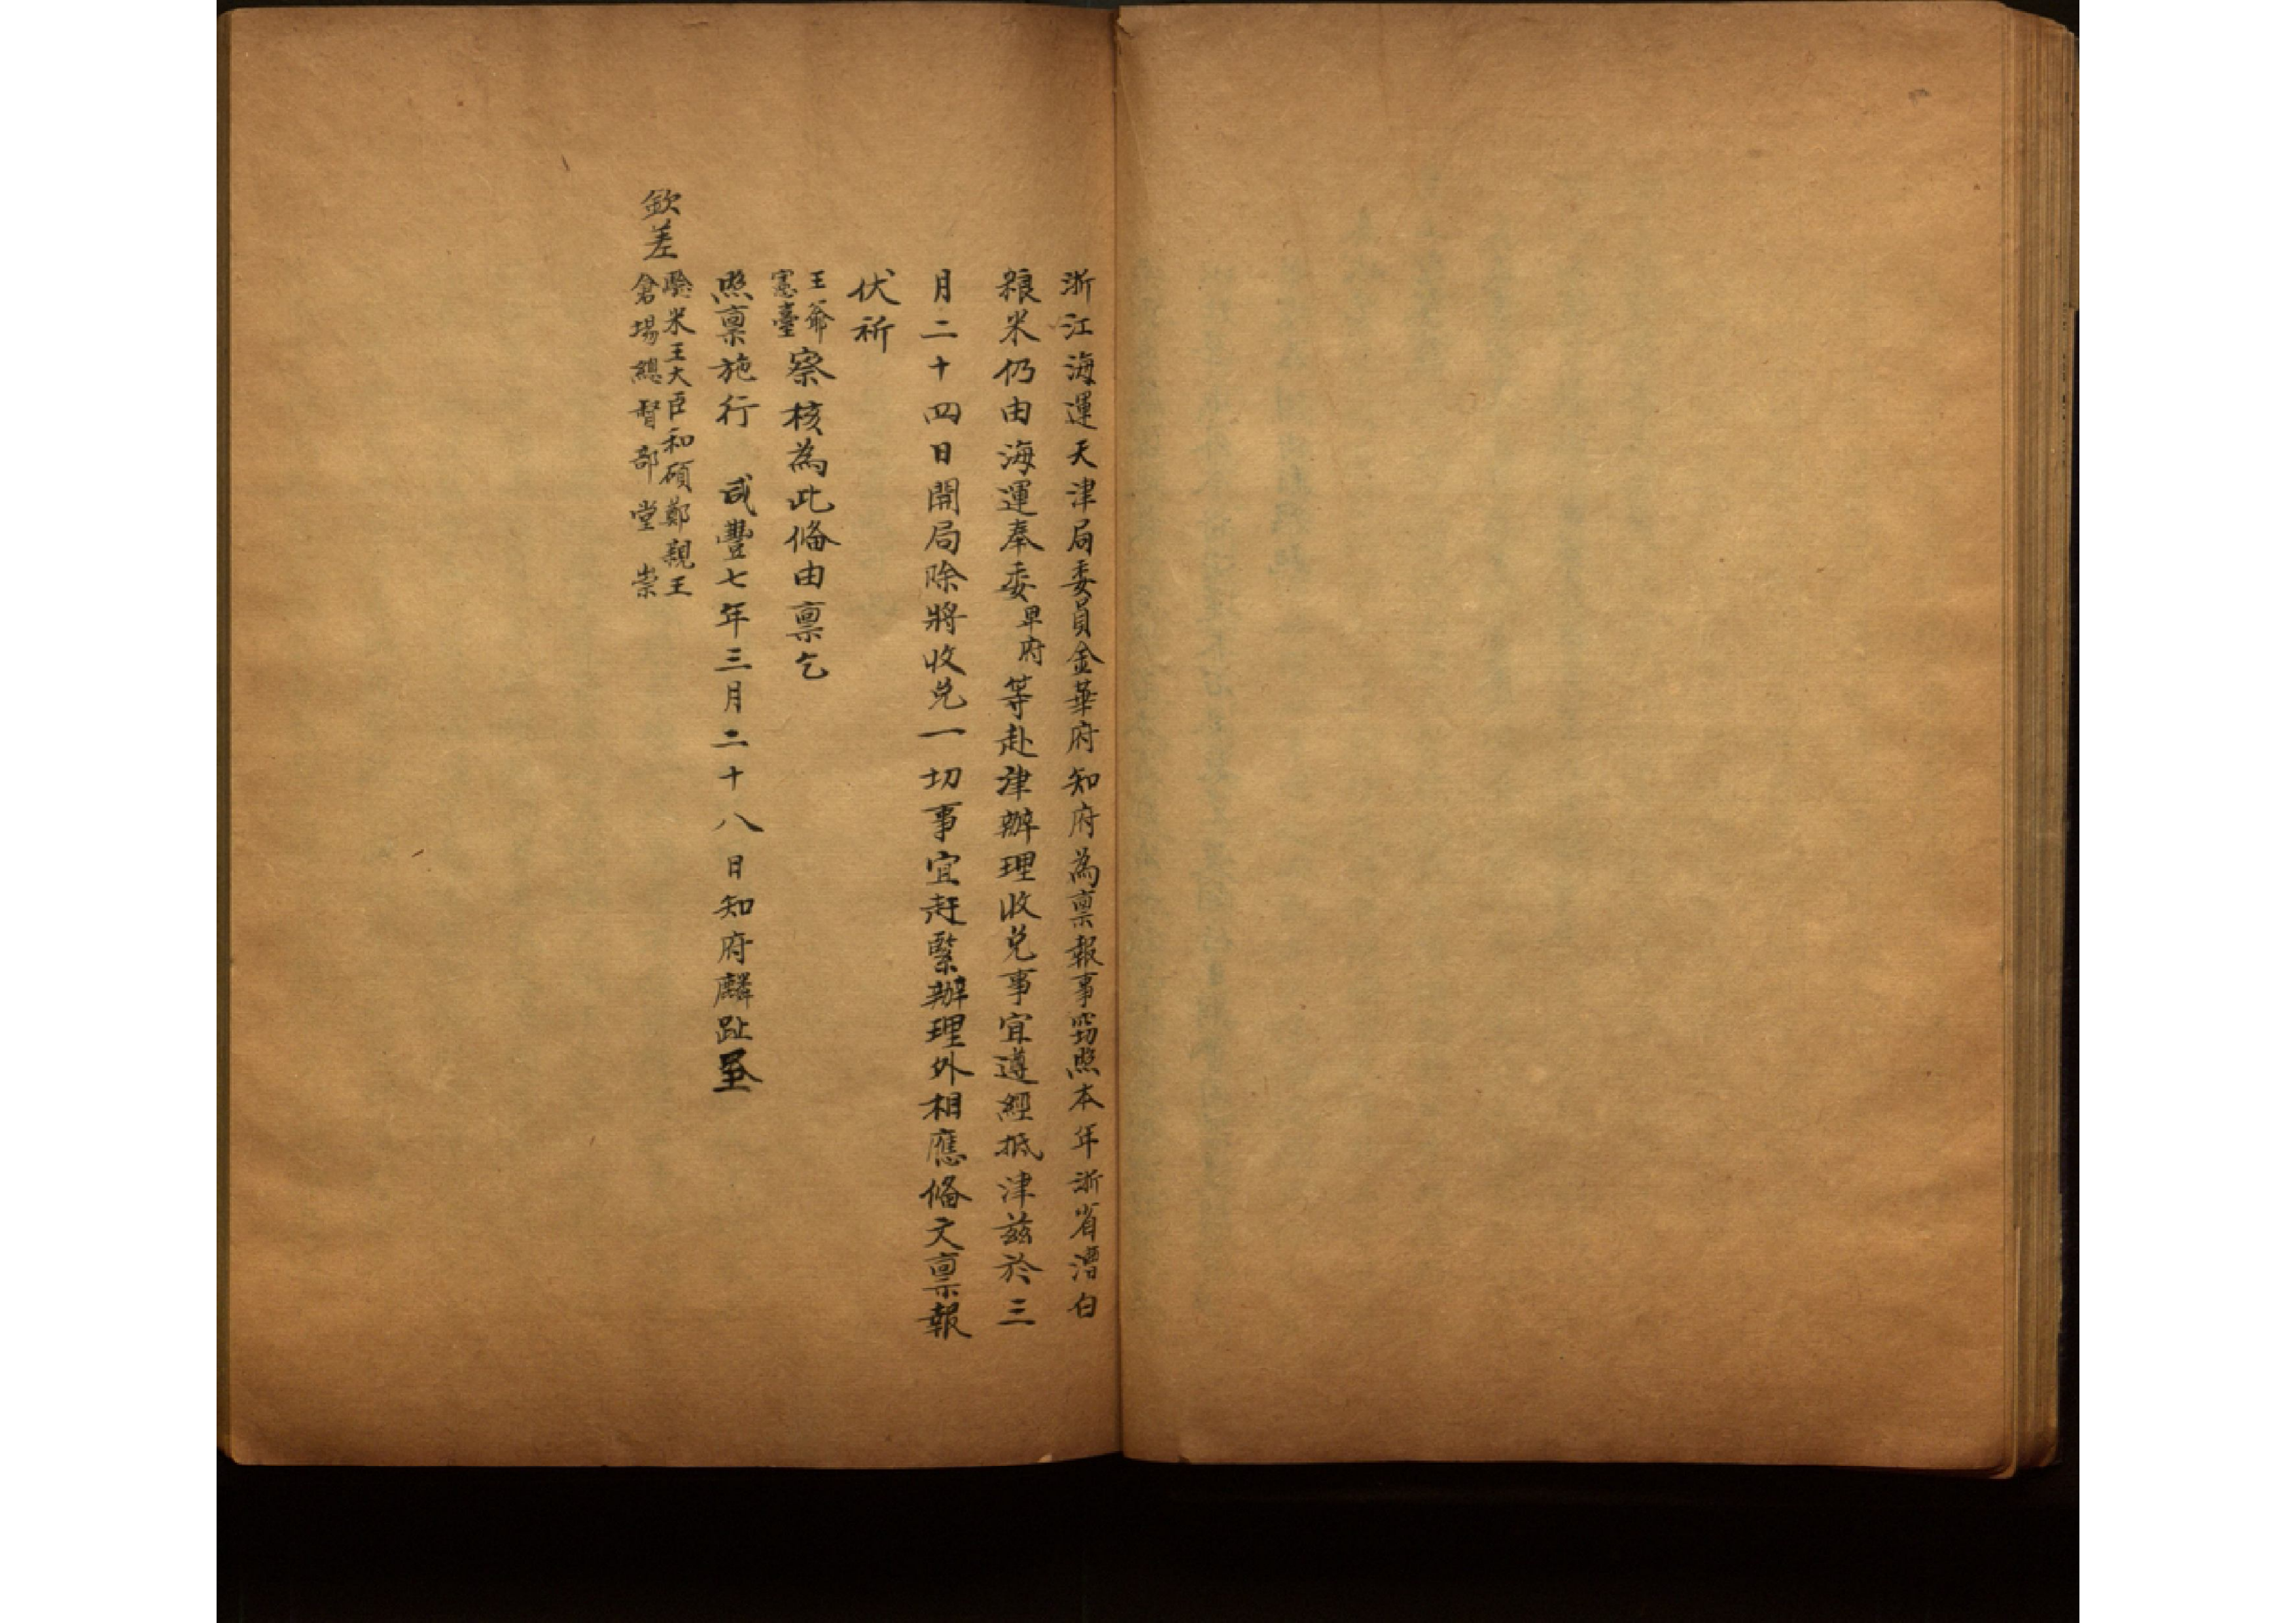 浙江海運天津局委員金華府知府為禀報事竊照本年浙省漕白
粮米仍由海運奉委卑府等赴津辦理收兌事宜遵經抵津兹於三
月二十四日開局除將收兌一切事宜赶緊辦理外相應俻文禀報
伏祈
王爺
憲臺
察核為此俻由禀乞
照禀施行 咸豐七年三月二十八日知府麟趾
欽差
驗米王大臣和碩鄭親王
倉場總督部堂崇